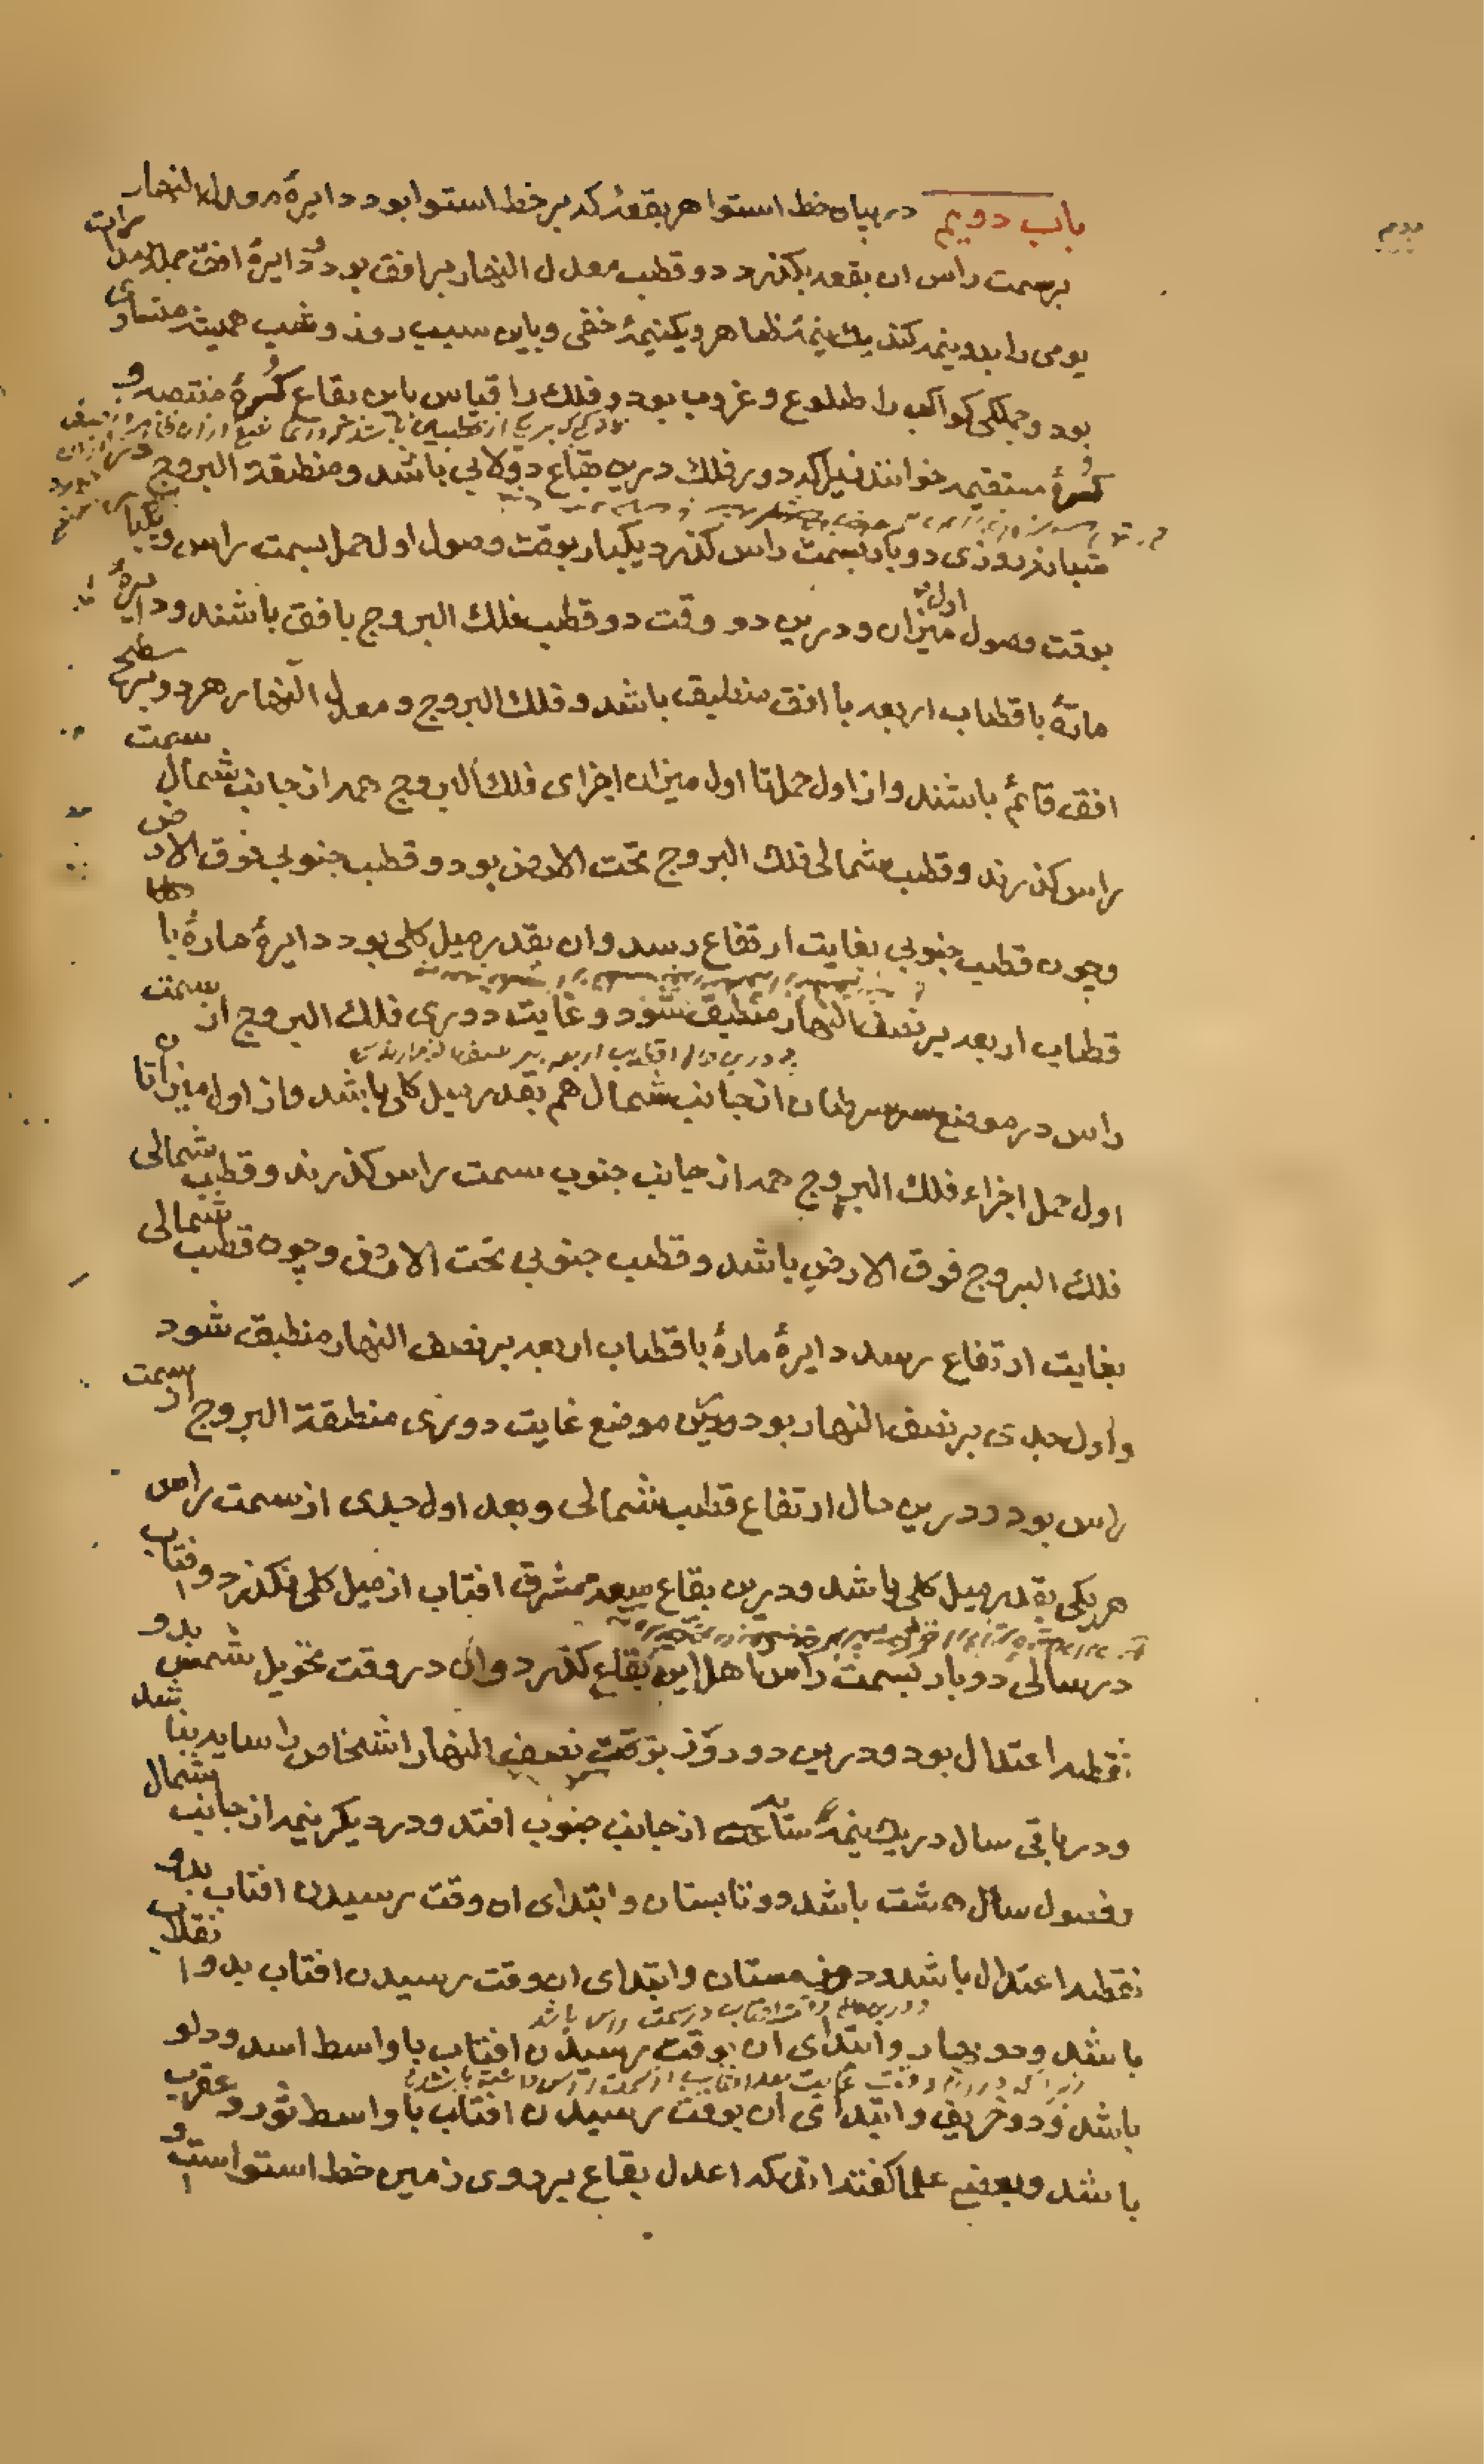 باب دویم در بیان خط استوا هر بقعهٔ که بر خط استوا بود دایرهٔ معدل النهار
بر سمت راس ان بقعه بکذرد و دو قطب معدل النهار بر افق بود و دایرهٔ افق جمله مدارات
یومی را بدو نیمه کند یک نیمهٔ ظاهر و یکنیمهٔ خفی و باین سبب روز و شب همیشه متساوی
بود و جملکی کواکب را طلوع و غروب بود و فلک را قیاس باین بقاع کرهٔ منتصبه و
کرهٔ مستقیمه خوانند زیراکه دور فلک درین بقاع دولابی باشد و منطقة البروج در
شبانروزی دو بار بسمت راس کذرد یکبار بوقت وصول اول حمل بسمت راس و یکبار
بوقت وصول اول میزان و درین دو وقت دو قطب فلک البروج بافق باشند و دایرهٔ
مارّهٔ باقطاب اربعه با افق منطبق باشد و فلک البروج و معدل النهار هر دو بر سطح
افق قائم باشند و از اول حمل تا اول میزان اجزای فلک البروج همه از جانب شمال سمت
راس کذرند و قطب شمالی فلک البروج تحت الارض بود و قطب جنوبی فوق الارض
و چون قطب جنوبی بغایت ارتفاع رسد و ان بقدر میل کلی بود دایرهٔ مارهٔ با
قطاب اربعه بر نصف النهار منطبق شود و غایت دوری فلک البروج از سمت
راس در موضع سر سرطان از جانب شمال هم بقدر میل کلی باشد و از اول میزان تا
اول حمل اجزاء فلک البروج همه از جانب جنوب سمت راس کذرند و قطب شمالی
فلک البروج فوق الارض باشد و قطب جنوبی تحت الارض و چون قطب شمالی
بغایت ارتفاع رسد دایرهٔ مارهٔ باقطاب اربعه بر نصف النهار منطبق شود
و اول جدی بر نصف النهار بود و این موضع غایت دوری منطقة البروج از سمت
راس بود و درین حال ارتفاع قطب شمالی و بعد اول جدی از سمت راس
هر یکی بقدر میل کلی باشد و درین بقاع مشرق افتاب از میل کلی نکذرد و افتاب
در سالی دو بار بسمت راس اهل این بقاع کذرد و ان در وقت تحویل شمس بدو
نقطه اعتدال بود و درین دو روز بوقت نصف النهار اشخاص را سایه نباشد
و در باقی سال در یک نیمهٔ سایه از جانب جنوب افتد و در دیکر نیمه از جانب شمال
و فصول سال هشت باشد دو تابستان و ابتدای ان وقت رسیدن افتاب بدو
نقطه اعتدال باشد و دو زمستان و ابتدای ان وقت رسیدن افتاب بدو انقلاب
باشد و دو بهار و ابتدای ان بوقت رسیدن افتاب باواسط اسد و دلو
باشد و دو خریف و ابتدای ان بوقت رسیدن افتاب باواسط ثور و عقرب
باشد و بعضی علما کفته‌اند که اعدل بقاع بر روی زمین خط استواست و